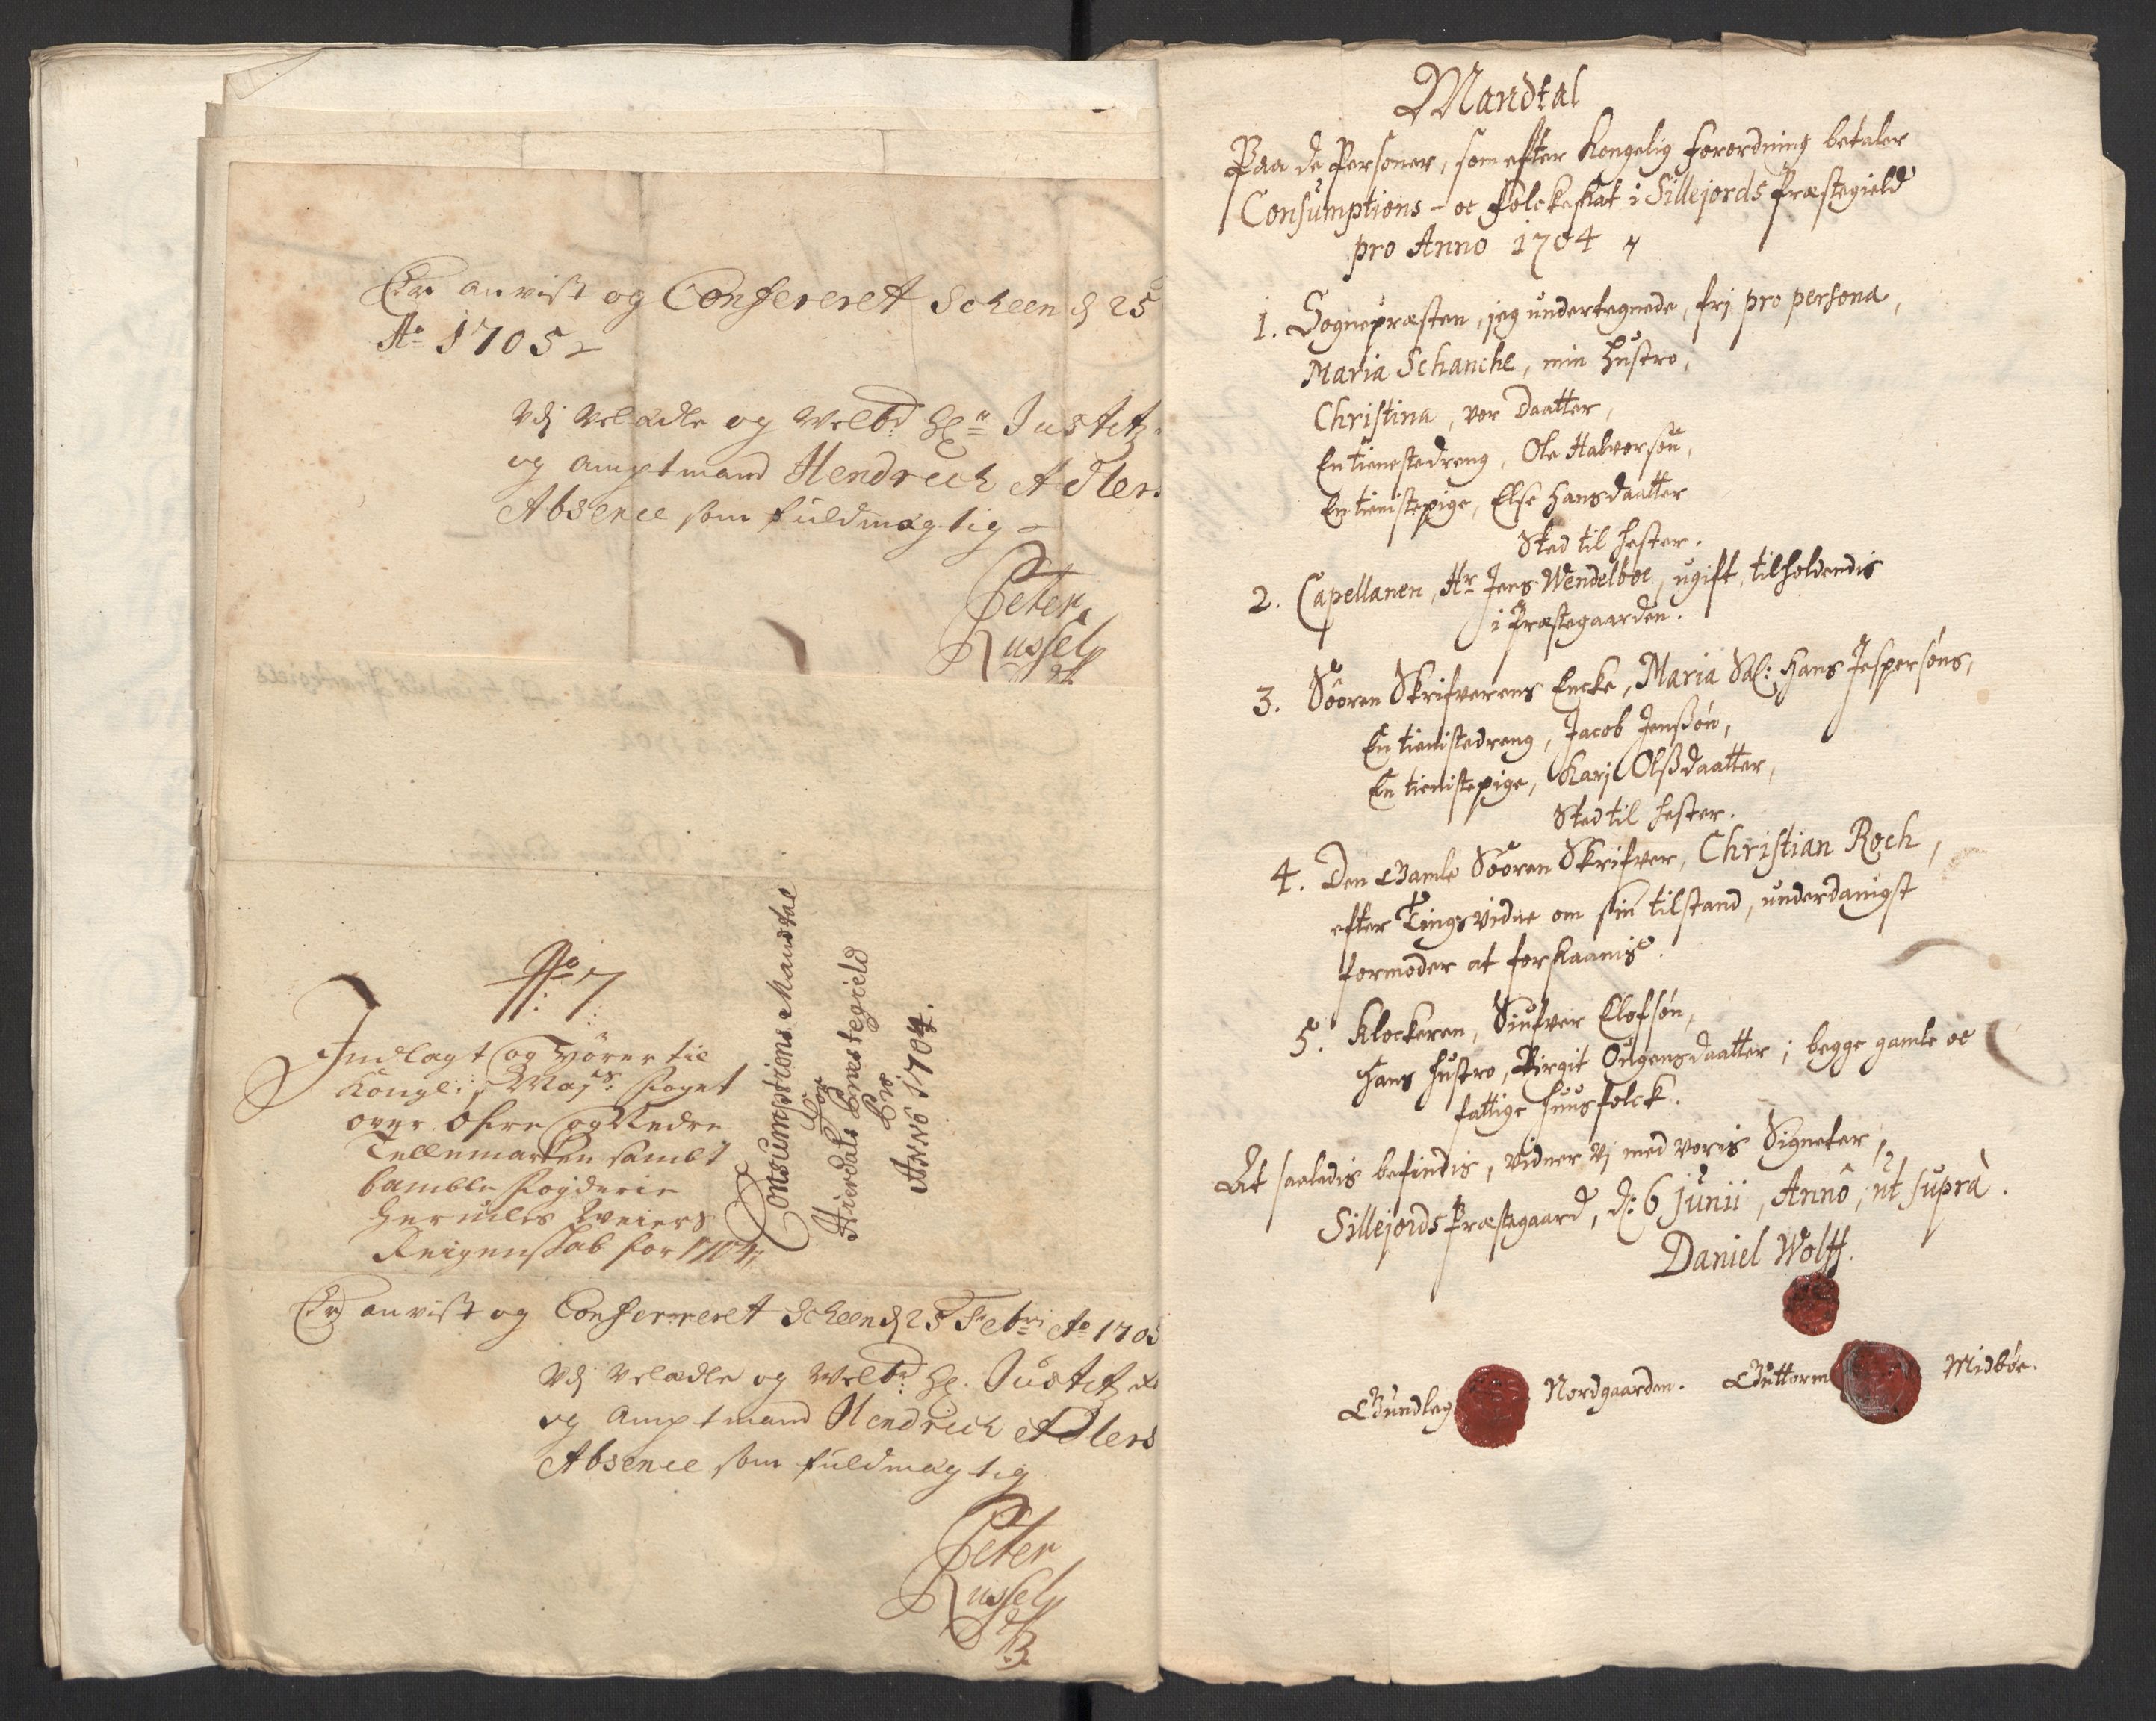 Er anvist og Confereret Scheen d 25
Ao 1705
Udj Velædle og Welbd Hr Justitz
og Amptmand Hendrich Adlers
Absence som fuldmægtig
Peter
Russel
No: 7
Indlagt og hörer til
Kongl: Mays: Foget
over Öfre og Nedre
Tellemarken sambt
bamble fogderie
Herculis Weiers
Reigenskab for 1704
Consumptions Mandtal
For
Hierdals Præstegield
Pro
Anno 1704.
Er anvist og Conferreret Scheen d 25 Febri Ao 1705
Udj Velædle og Welbd: Hr. Justitz
og Amptmand Hendrich Adlers
Absence som fuldmægtig
Peter
Russel
Mandtal
Paa de Personer, som efter Kongelig forordning betaler
Consumptions - oc folckeskat i Sillejords Præstegield
pro Anno 1704
1. Sognepræsten, jeg undertegnede, frj pro persona,
Maria Schanche, min Hustro,
Christina, vor Daatter,
En tienestedreng, Ole Halvorsøn,
En tienistepige, Else Hansdaatter
Sted til Hester.
2. Capellanen, Hr Jens Wendelboe, ugift, tilholdendis
i Præstegaarden.
3. Sooren Skrifverens Encke, Maria Sal: Hans Jespersøns,
En tienistedreng, Jacob Jenssøn,
En tienistepige, Karj Olssdaatter,
Sted til Hester.
4. Den Gamle Sooren Skrifver, Christian Roch,
efter Tingsvidne om sin tilstand, underdanigst
formoder at forskaanis.
5. Klockeren, Siufver Elofsøn,
Hans Hustro, Birgit Ougensdaatter; begge gamle oc
fattige Huusfolck.
At saaledis befindis, vidner vj med voris Signeter,
Sillejords Præstegaard, d: 6 Junii, Anno, ut supra.
Daniel Wolff.
Gundleg Nordgaarden. Guttorm Midbøe.